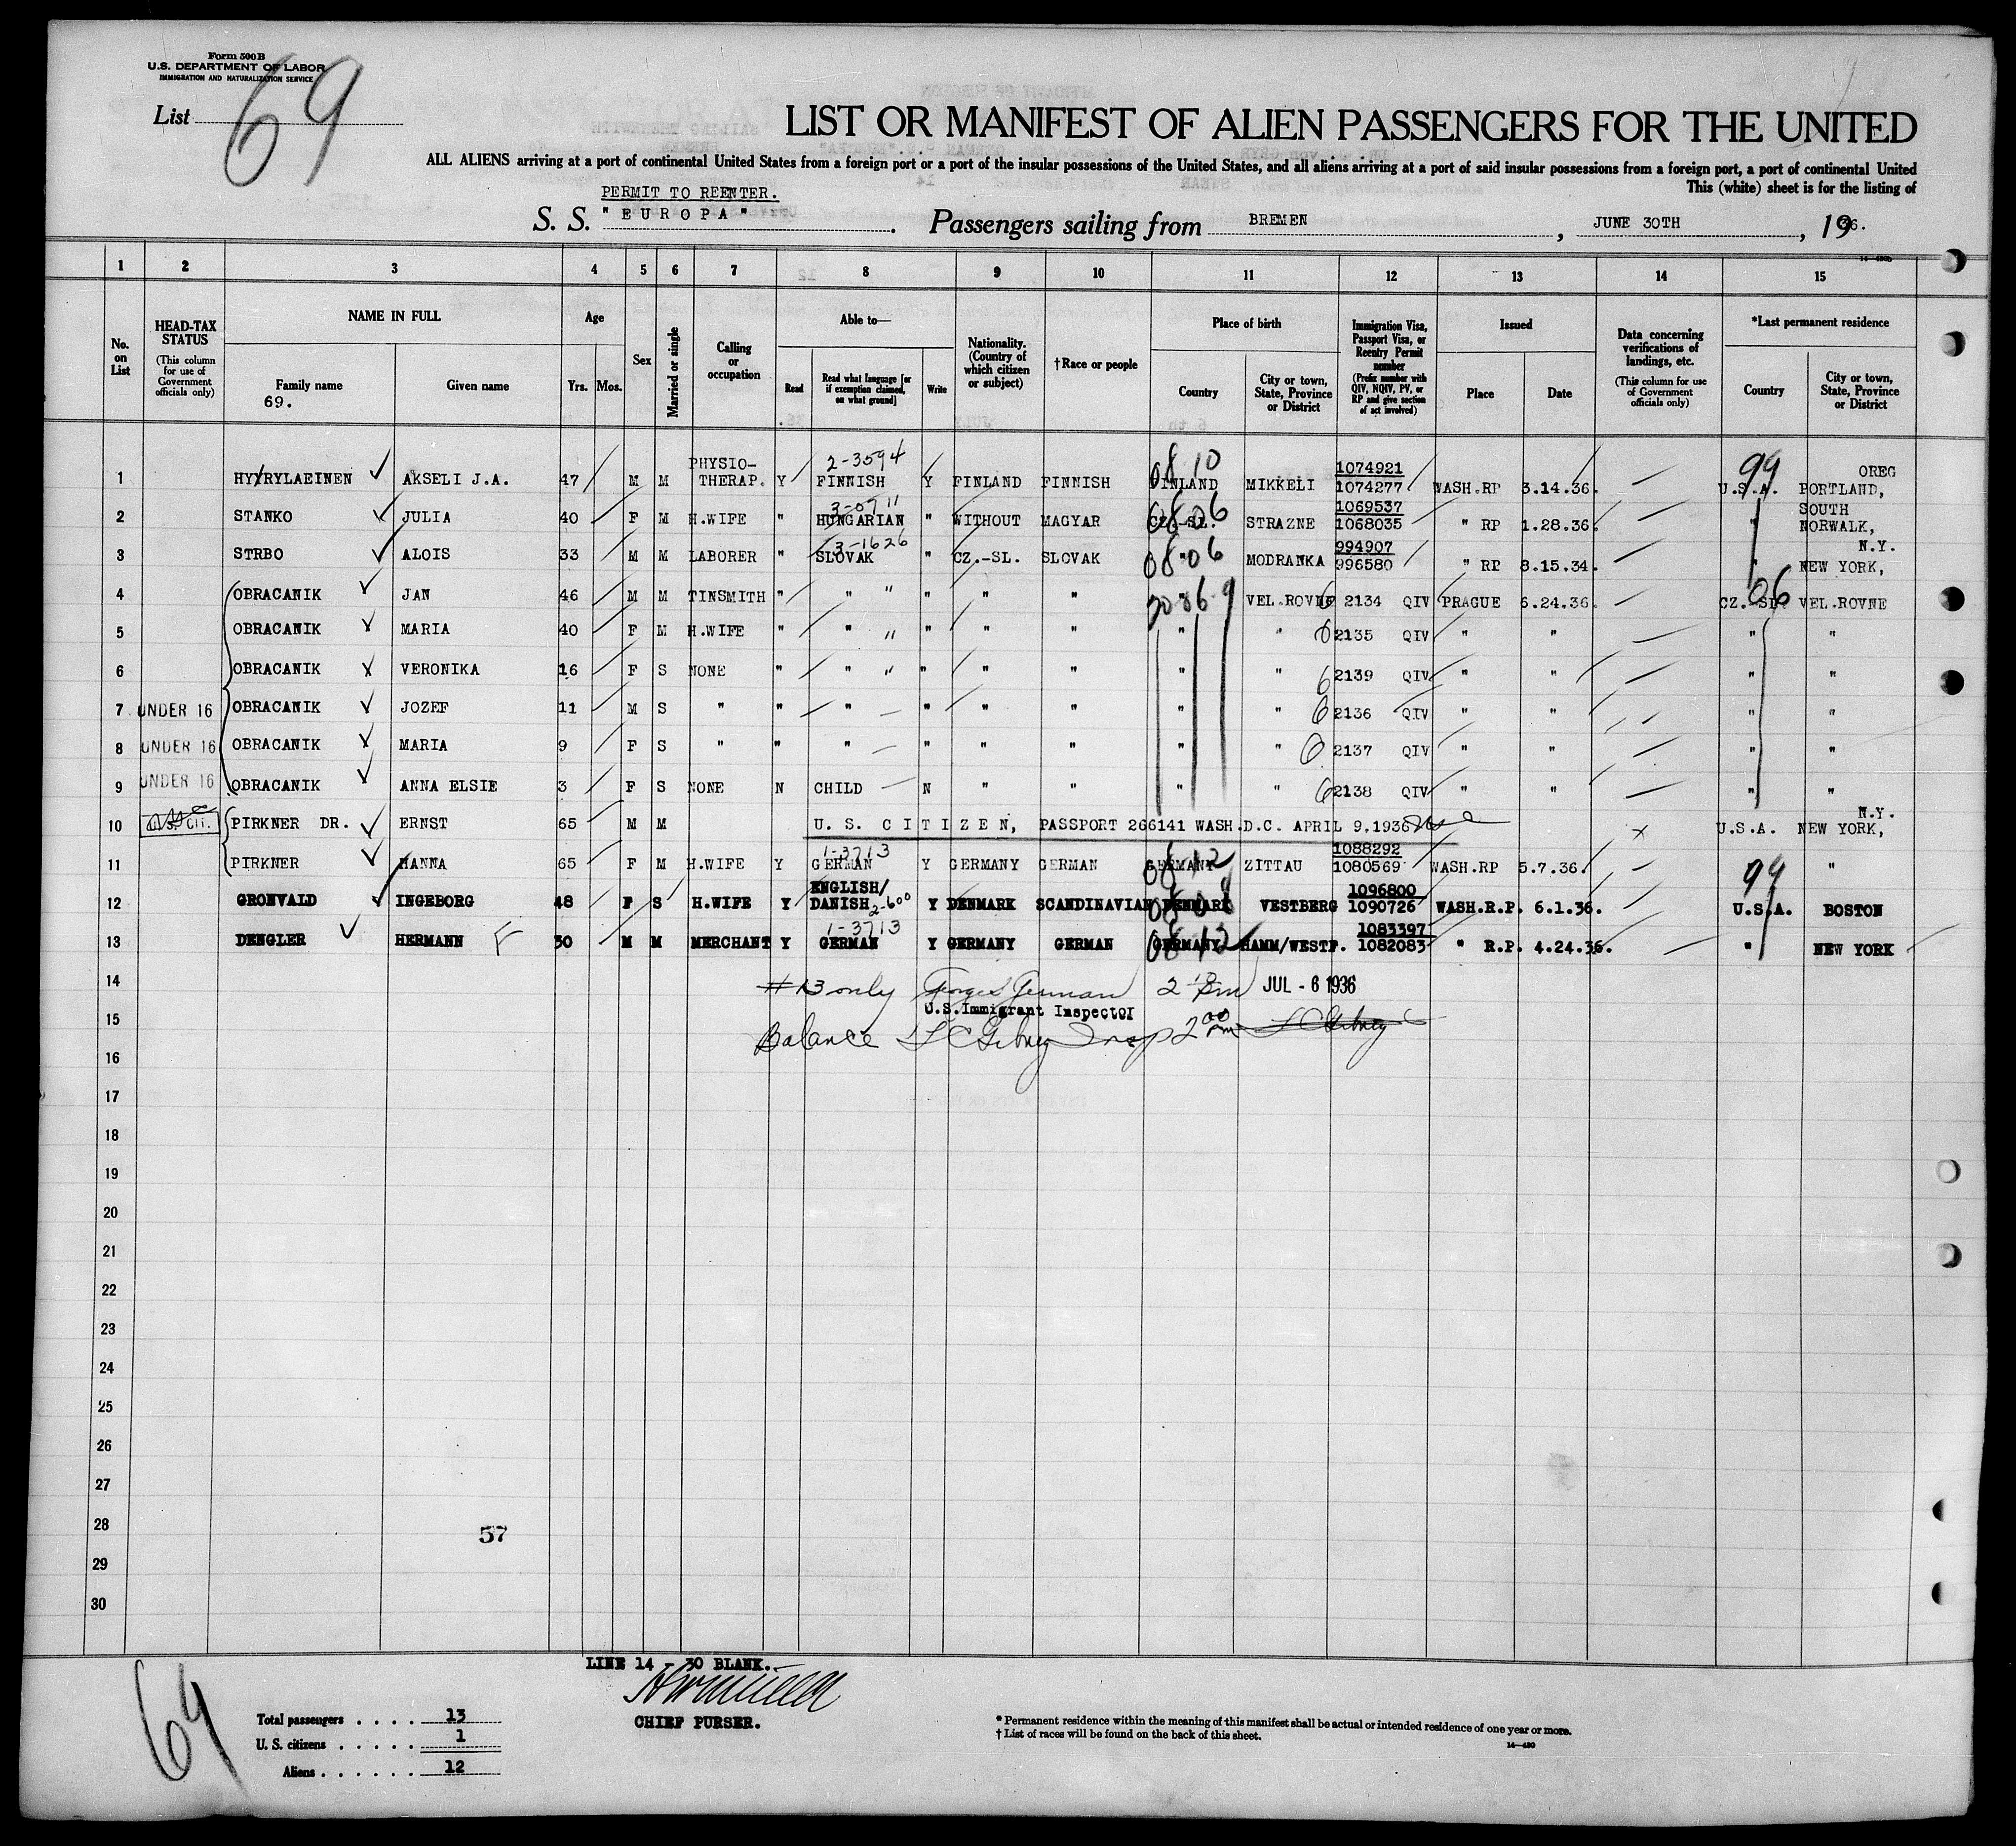 Form 500 B
U.S. DEPARTMENT OF LABOR
IMMIGRATION AND NATURALIZATION SERVICE
List 69
LIST OR MANIFEST OF ALIEN PASSENGERS FOR THE UNITED
ALL ALIENS arriving at a port of continental United States from a foreign port or a port of the insular possessions of the United States, and all aliens arriving at a port of said insular possessions from a foreign port, a port of continental United
This (white) sheet is for the listing of
PERMIT TO REENTER.
S. S. "EUROPA". Passengers sailing from BREMEN, JUNE 30TH, 1936.
1 2 3 4 5 6 7 8 9 10 11 12 13 14 15
No. on List
HEAD-TAX STATUS (This column for use of Government officials only)
NAME IN FULL Family name 69. Given name
Age Yrs. Mos.
Sex
Married or single
Calling or occupation
Able to— Read Read what language [or if exemption claimed, on what ground] Write
Nationality. (Country of which citizen or subject)
†Race or people
Place of birth Country City or town, State, Province or District
Immigration Visa, Passport Visa, or Reentry Permit number (Prefix number with QIV, NQIV, PV, or RP and give section of act involved)
Issued Place Date
Data concerning verifications of landings, etc. (This column for use of Government officials only)
*Last permanent residence Country City or town, State, Province or District
1 HYYRYLAEINEN AKSELI J.A. 47 M M PHYSIO-THERAP. Y 2-3594 FINNISH Y FINLAND FINNISH 0810 FINLAND MIKKELI 1074921 1074277 WASH.RP 3.14.36. 99 U.S.A. PORTLAND, OREG
2 STANKO JULIA 40 F M H.WIFE " 3-0711 HUNGARIAN " WITHOUT MAGYAR 0806 CZ.-SL. STRAZNE 1069537 1068035 " RP 1.28.36. " SOUTH NORWALK,
3 STRBO ALOIS 33 M M LABORER " 3-1626 SLOVAK " CZ.-SL. SLOVAK 0806 " MODRANKA 994907 996580 " RP 8.15.34. " NEW YORK, N.Y.
4 OBRACANIK JAN 46 M M TINSMITH " " " " " " VEL.ROVNE 2134 QIV PRAGUE 6.24.36. 06 CZ.-SL. VEL.ROVNE
5 OBRACANIK MARIA 40 F M H.WIFE " " " " " " " 6 2135 QIV " " " "
6 OBRACANIK VERONIKA 16 F S NONE " " " " " " " 6 2139 QIV " " " "
7 UNDER 16 OBRACANIK JOZEF 11 M S " " " " " " " " 6 2136 QIV " " " "
8 UNDER 16 OBRACANIK MARIA 9 F S " " " " " " " " 6 2137 QIV " " " "
9 UNDER 16 OBRACANIK ANNA ELSIE 3 F S NONE N CHILD N " " " " 6 2138 QIV " " " "
10 U.S. CIT. PIRKNER DR. ERNST 65 M M U. S. CITIZEN, PASSPORT 266141 WASH.D.C. APRIL 9.1936 x U.S.A. NEW YORK, N.Y.
11 PIRKNER HANNA 65 F M H.WIFE Y 1-3713 GERMAN Y GERMANY GERMAN 0812 GERMANY ZITTAU 1088292 1080569 WASH.RP 5.7.36. 99 "
12 GRONVALD INGEBORG 48 F S H.WIFE Y ENGLISH/ DANISH 2-600 Y DENMARK SCANDINAVIAN 0808 DENMARK VESTBERG 1096800 1090726 WASH.R.P. 6.1.36. U.S.A. BOSTON
13 DENGLER HERMANN F 30 M M MERCHANT Y 1-3713 GERMAN Y GERMANY GERMAN 0812 GERMANY HAMM/WESTF. 1083397 1082083 " R.P. 4.24.36. " NEW YORK
14 #13 only German 2 pm JUL - 6 1936
U.S. Immigrant Inspector
15 Balance L C Gibney Insp 2 00 pm L C Gibney
16
17
18
19
20
21
22
23
24
25
26
27
28 57
29
30
LINE 14 - 30 BLANK.
CHIEF PURSER.
69
Total passengers . . . . 13
U. S. citizens . . . . . 1
Aliens . . . . . . 12
* Permanent residence within the meaning of this manifest shall be actual or intended residence of one year or more.
† List of races will be found on the back of this sheet.
14—430